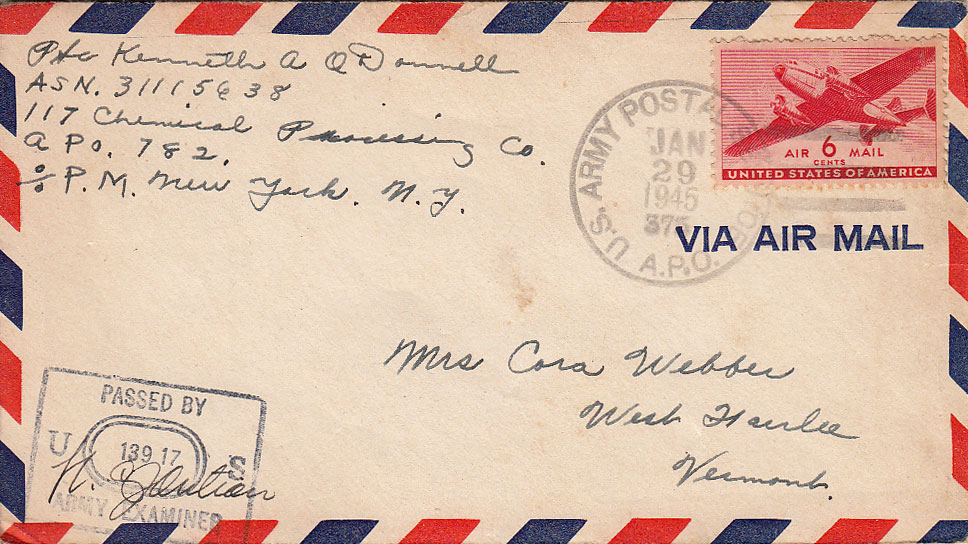 Pfc Kenneth A O'Donnell
ASN. 31115638
117 Chemical Processing Co.
A P O. 782.
℅ P. M. New York. N. Y.
U.S. ARMY POSTAL
JAN
29
1945
A.P.O.
AIR 6 MAIL
CENTS
UNITED STATES OF AMERICA
VIA AIR MAIL
Mrs Cora Webber
West Fairlee
Vermont.
PASSED BY
U 13917 S
ARMY EXAMINER